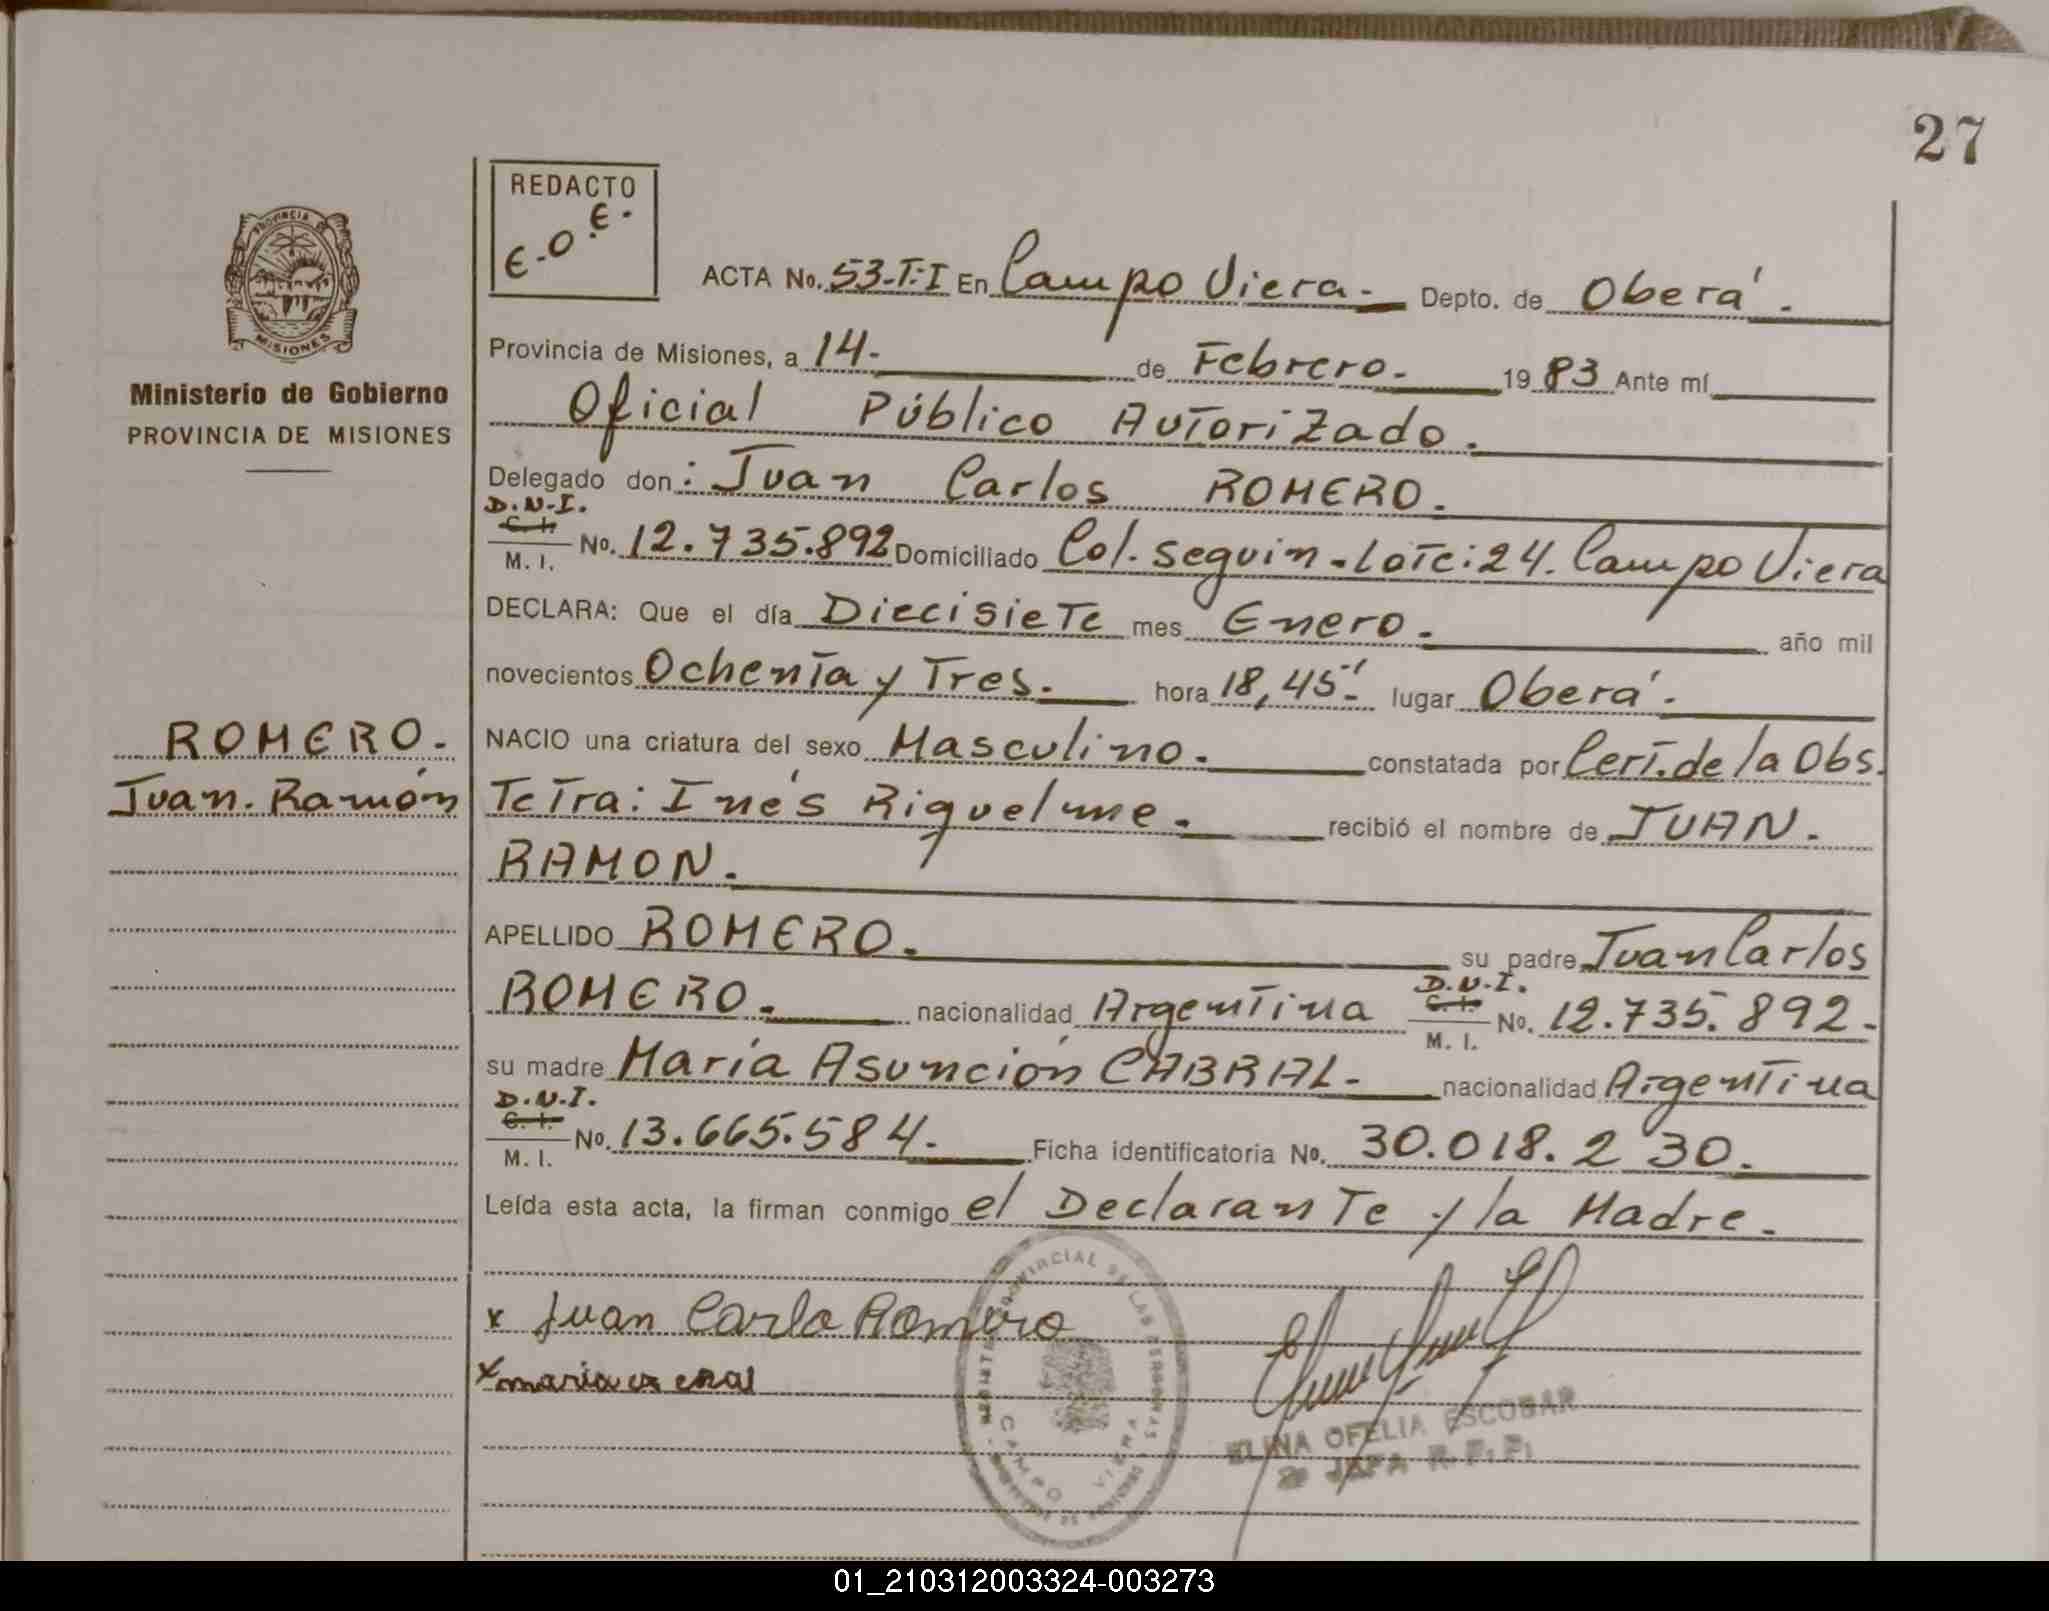 27
PROVINCIA DE
MISIONES
Ministerio de Gobierno
PROVINCIA DE MISIONES
REDACTO
E.O.E.
ACTA No. 53-T:I En Campo Viera.- Depto. de Oberá.
Provincia de Misiones, a 14. de Febrero. 1983 Ante mí
Oficial Público Autorizado.
Delegado don: Juan Carlos ROMERO.
D.N.I.
C. I.
M. I. No. 12.735.892 Domiciliado Col. Seguin. Lote: 24. Campo Viera
DECLARA: Que el día Diecisiete mes Enero. año mil
novecientos Ochenta y Tres. hora 18,45'. lugar Oberá.
NACIO una criatura del sexo Masculino. constatada por Cert. de la Obs.
Tetra: Inés Riquelme. recibió el nombre de JUAN.
RAMON.
ROMERO.
Juan. Ramón
APELLIDO ROMERO. su padre Juan Carlos
ROMERO. nacionalidad Argentina D.N.I. C. I. M. I. No. 12.735.892.
su madre María Asunción CABRAL. nacionalidad Argentina
D.N.I.
C. I.
M. I. No. 13.665.584. Ficha identificatoria No. 30.018.230.
Leída esta acta, la firman conmigo el Declarante y la Madre.
x Juan Carlo Romero
x maria
PROVINCIAL DE LAS PERSONAS
CAMPO VIERA
ELINA OFELIA ESCOBAR
JEFA R. P. P.
01_210312003324-003273